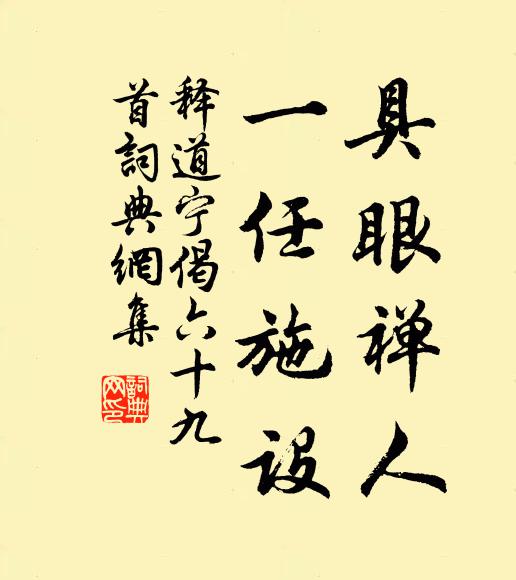 具眼禅人
一任施设
释道宁偈六十九
首詞典網集
詞典
网印